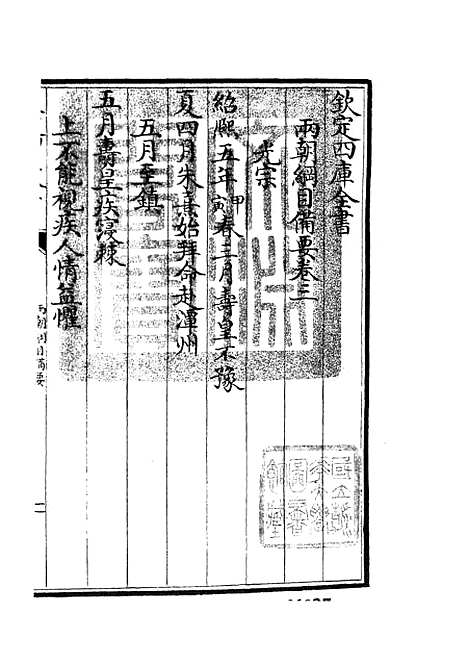 欽定四庫全書
兩朝綱目備要卷三
光宗
紹熙五年甲寅春三月壽皇不豫
夏四月朱熹始拜命赴潭州
五月至鎮
五月壽皇疾浸棘
上不能視疾人情益懼
兩朝綱目備要